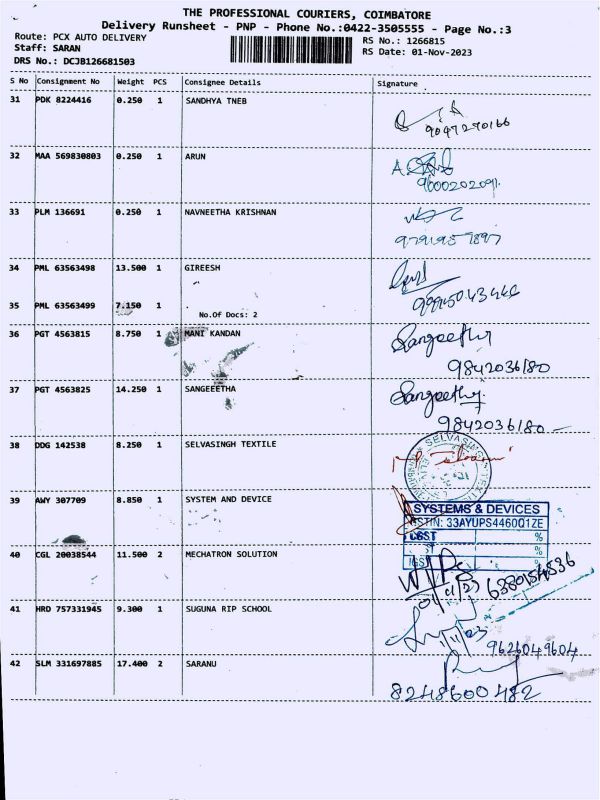 THE PROFESSIONAL COURIERS, COIMBATORE
Delivery Runsheet - PNP - Phone No.:0422-3505555 - Page No.:3
Route: PCX AUTO DELIVERY
RS No.: 1266815
Staff: SARAN
RS Date: 01-Nov-2023
DRS No.: DCJB126681503
S No Consignment No Weight PCS Consignee Details Signature
31 PDK 8224416 0.250 1 SANDHYA TNEB
9047290166
32 MAA 569830803 0.250 1 ARUN
9600020209
33 PLM 136691 0.250 1 NAVNEETHA KRISHNAN
34 PML 63563498 13.500 1 GIREESH
35 PML 63563499 7.150 1
No.Of Docs: 2
36 PGT 4563815 8.750 1 MANI KANDAN Sangeetha
9842036180
37 PGT 4563825 14.250 1 SANGEEETHA Sangeetha
9842036180
38 DDG 142538 8.250 1 SELVASINGH TEXTILE
39 AWY 307709 8.850 1 SYSTEM AND DEVICE
SYSTEMS & DEVICES
GSTIN: 33AYUPS4460Q1ZE
%
%
40 CGL 20038544 11.500 2 MECHATRON SOLUTION
41 HRD 757331945 9.300 1 SUGUNA RIP SCHOOL
9626049604
42 SLM 331697885 17.400 2 SARANU
8248600482